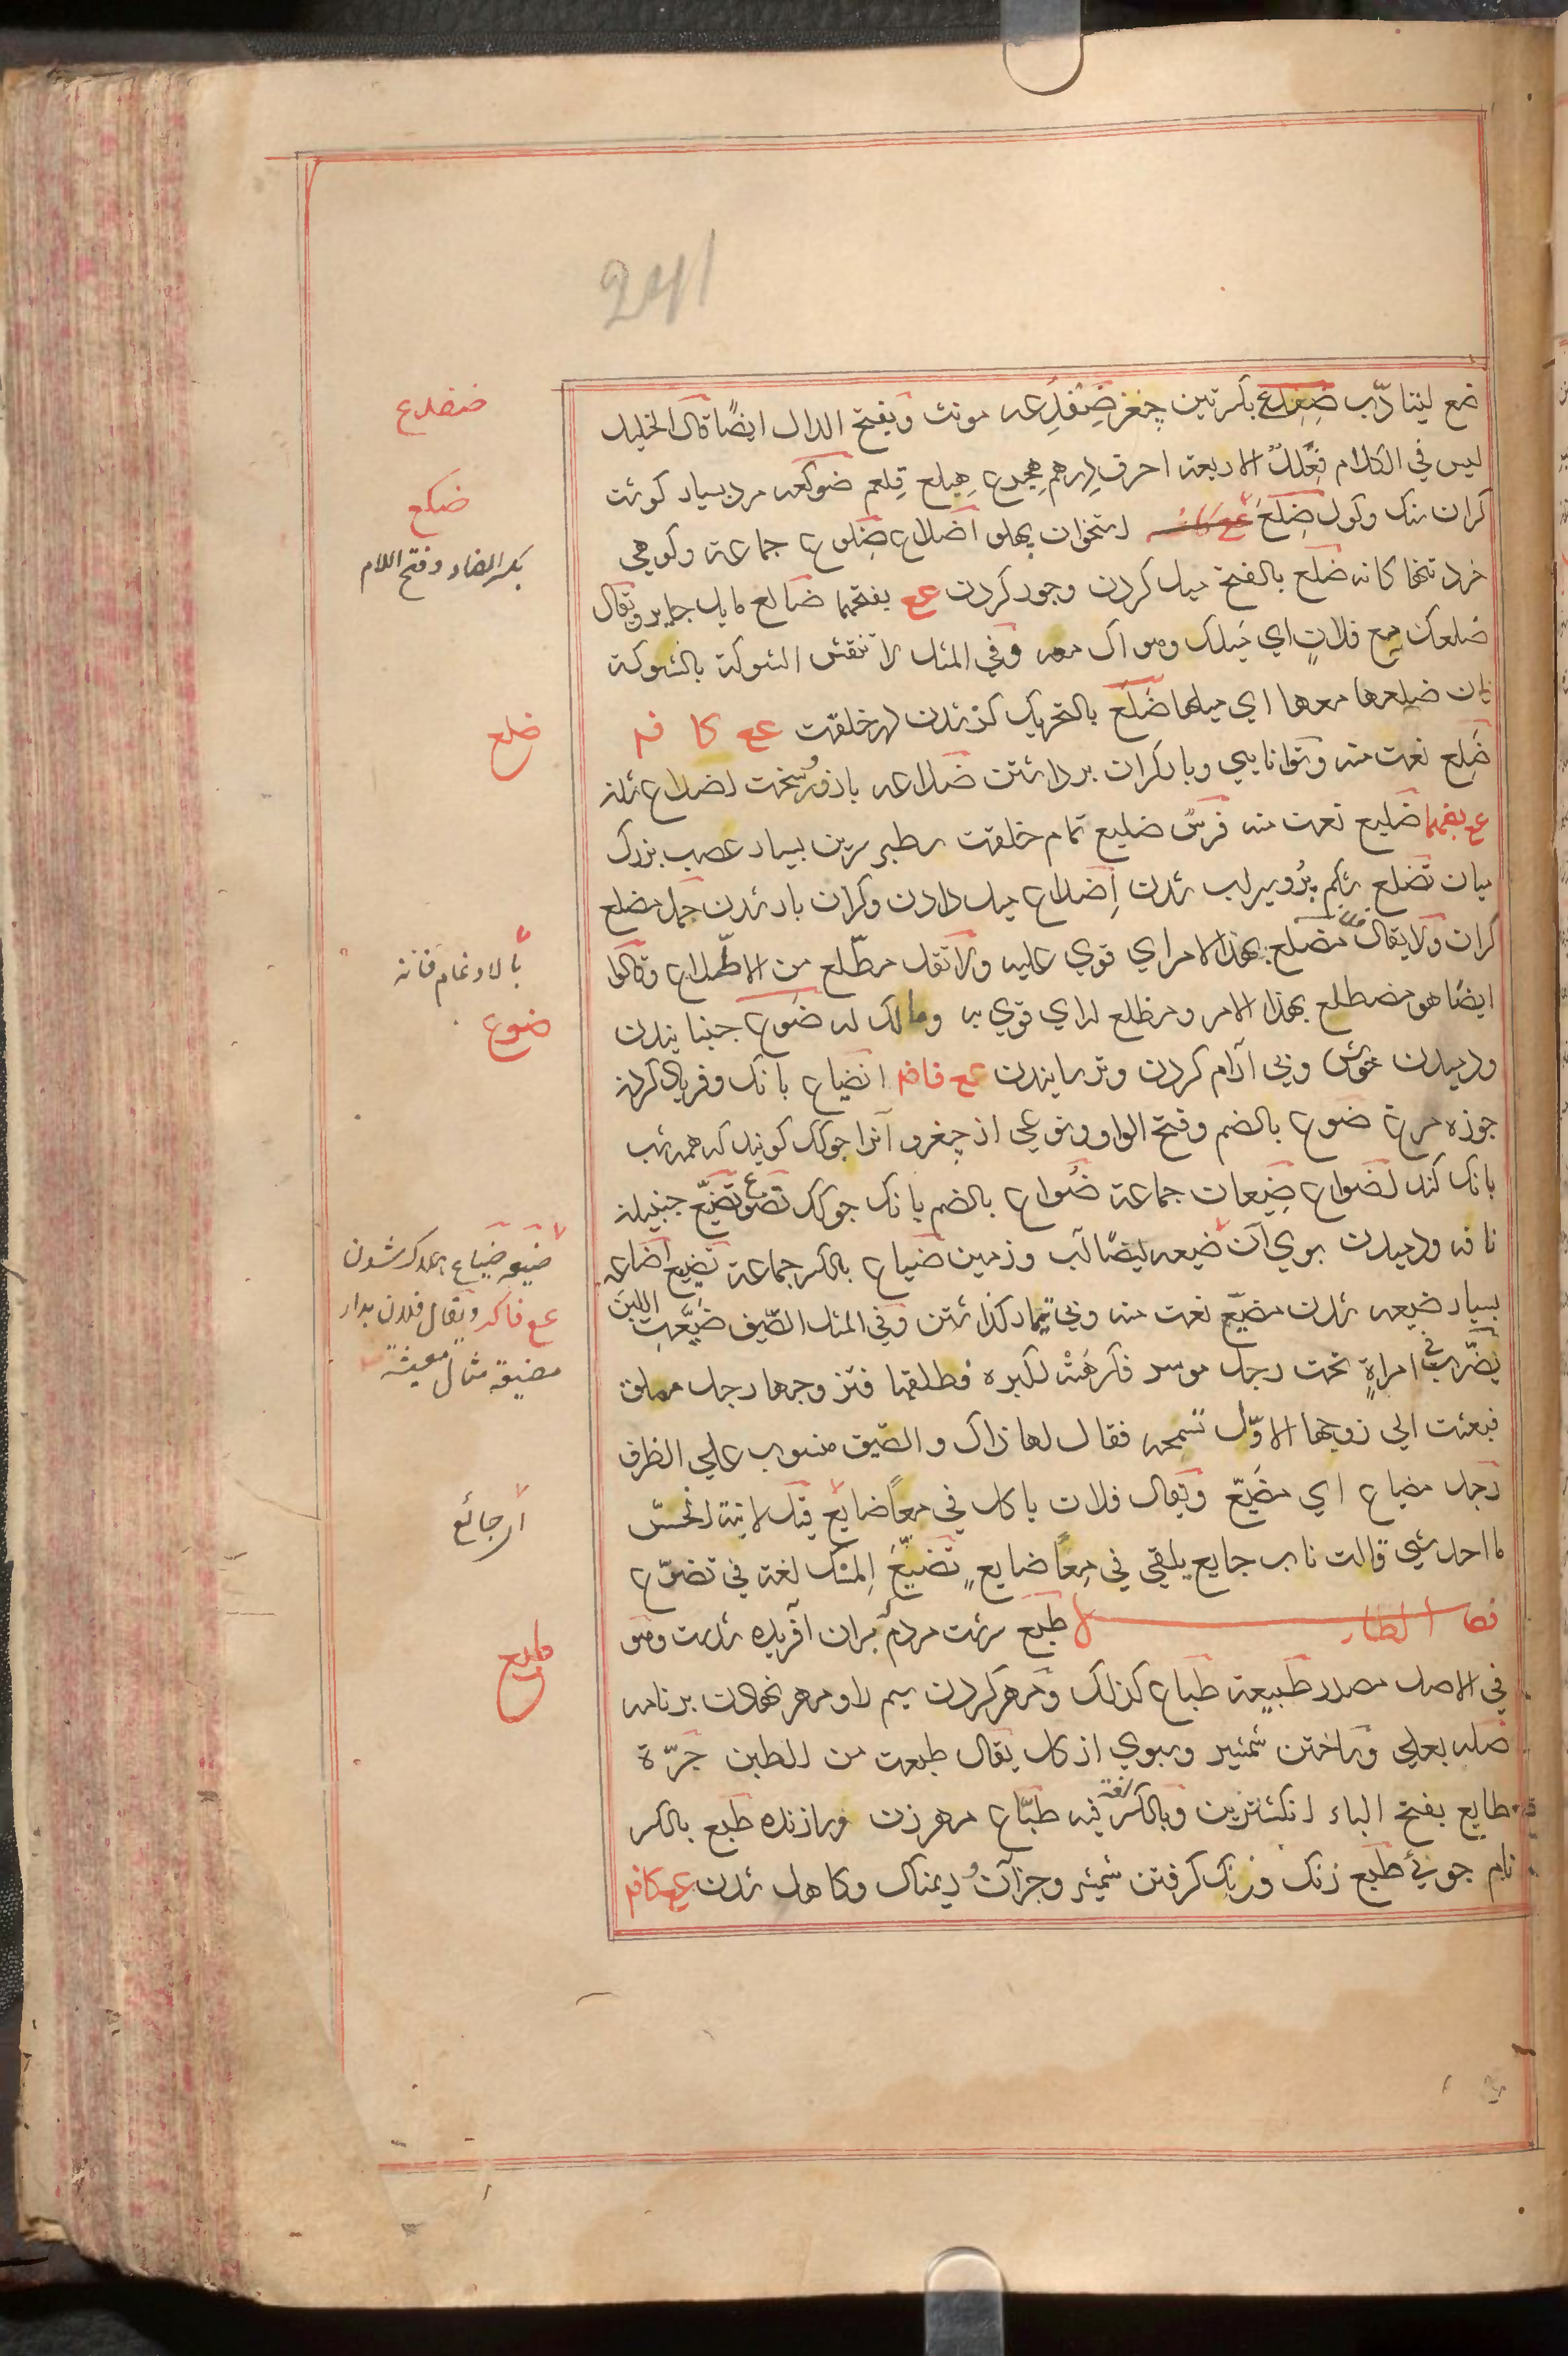 241
ضع ليتادّب ضِفدِع بكسرتين چغز ضِفدِعه مونث وبفتح الدال ايضًا قال الخليل
ليس في الكلام فِعْلَلٌ الا اربعة احرف درهم هجرع هبلع قلعم ضوكعه مرد بسيار كوشت
كران سنك وكول ضِلَع استخوان پهلو اضلاع ضلوع جماعة وكوهي
خرد تنها كانه ضلع بالفتح ميل كردن وجور كردن عع بفتحهما ضالع مايل جاير ويقال
ضلعك مع فلان اي ميلك وهواك معه وفي المثل لا تنقش الشوكة بالشوكة
فان ضلعها معها اي ميلها ضَلَع بالتحريك كژ شدن در خلقت عع كا فه
ضَلِع نعت منه وتوانايي وبار كران برداشتن ضلاعه با زور وسخت اضلاع شدن
عع بضمهما ضليع نعت منه فرسٌ ضليع تمام خلقت سطبر سرين بسيار عصب بزرك
ميان تضلع شكم پر وسيراب شدن اِضلاع ميل دادن وكران بار شدن حمل مضلع
كران ولا يقال مضلع بهذا الامر اي قوي عليه ولا تقل مطّلع من الاطّلاع وقالوا
ايضًا هو مضطلع بهذا الامر ومطلع له اي قوي به ومالك له ضوع جنبانيدن
ودميدن خوش وبي آرام كردن وترسانيدن عع فافه انضياع بانك وفرياد كردن
جوزه مرغ ضوع بالضم وفتح الواو ونوعي از چغد و آنرا جوكك كويند كه همه شب
بانك كند اضواع ضيعان جماعة ضُواع بالضم بانك جوكك تضوّع تضيّع جنبيدن
نافه ودميدن بوي آن ضيعه ايضًا آب وزمين ضياع بالكسر جماعة تضييع اضاعه
بسيار ضيعه شدن مضيع نعت منه وبي تيمار كذاشتن وفي المثل الصّيف ضيّعتِ اللبن
يضرب في امراةٍ تحت رجل موسر فكرهَتْه لكبره فطلقها فتزوجها رجل مملق
فبعثت الي زوجها الاوّل تستمحه فقال لها ذاك والصّيف منصوب علي الظرف
رجل مضياع اي مضيّع ويقال فلان ياكل في معًا ضايع قيل لابنة الخسّ
ما احد شيي قالت ناب جايع يلقي في مِعًا ضايعٍ تضيّعَ المسك لغة في تضوّع
فصل الطاء طبع سرشت مردم بران آفريده شدست وهو
في الاصل مصدر طبيعة طباع كذلك ومهر كردن سيم را ومهر نهادن بر نامه
صله بعلي وساختن شمشير وسبوي از كل يقال طبعت من الطين جَرّة
طابع بفتح الباء انكشترين وبالكسر لغة فيه طبّاع مهر زن وسازنده طبع بالكسر
نام جوئي طبع زنك وزنك كرفتن شمشير وجز آن وريمناك وكاهل شدن عع كافه
ضفدع
ضكع
بكسر الضاد وفتح اللام
ضلع
بالادغام فانه
ضوع
ضيعه ضياع هلاك شدن
عع فاكه ويقال فلان بدار
مضيعة مثال معيشة
اي جائع
طبع